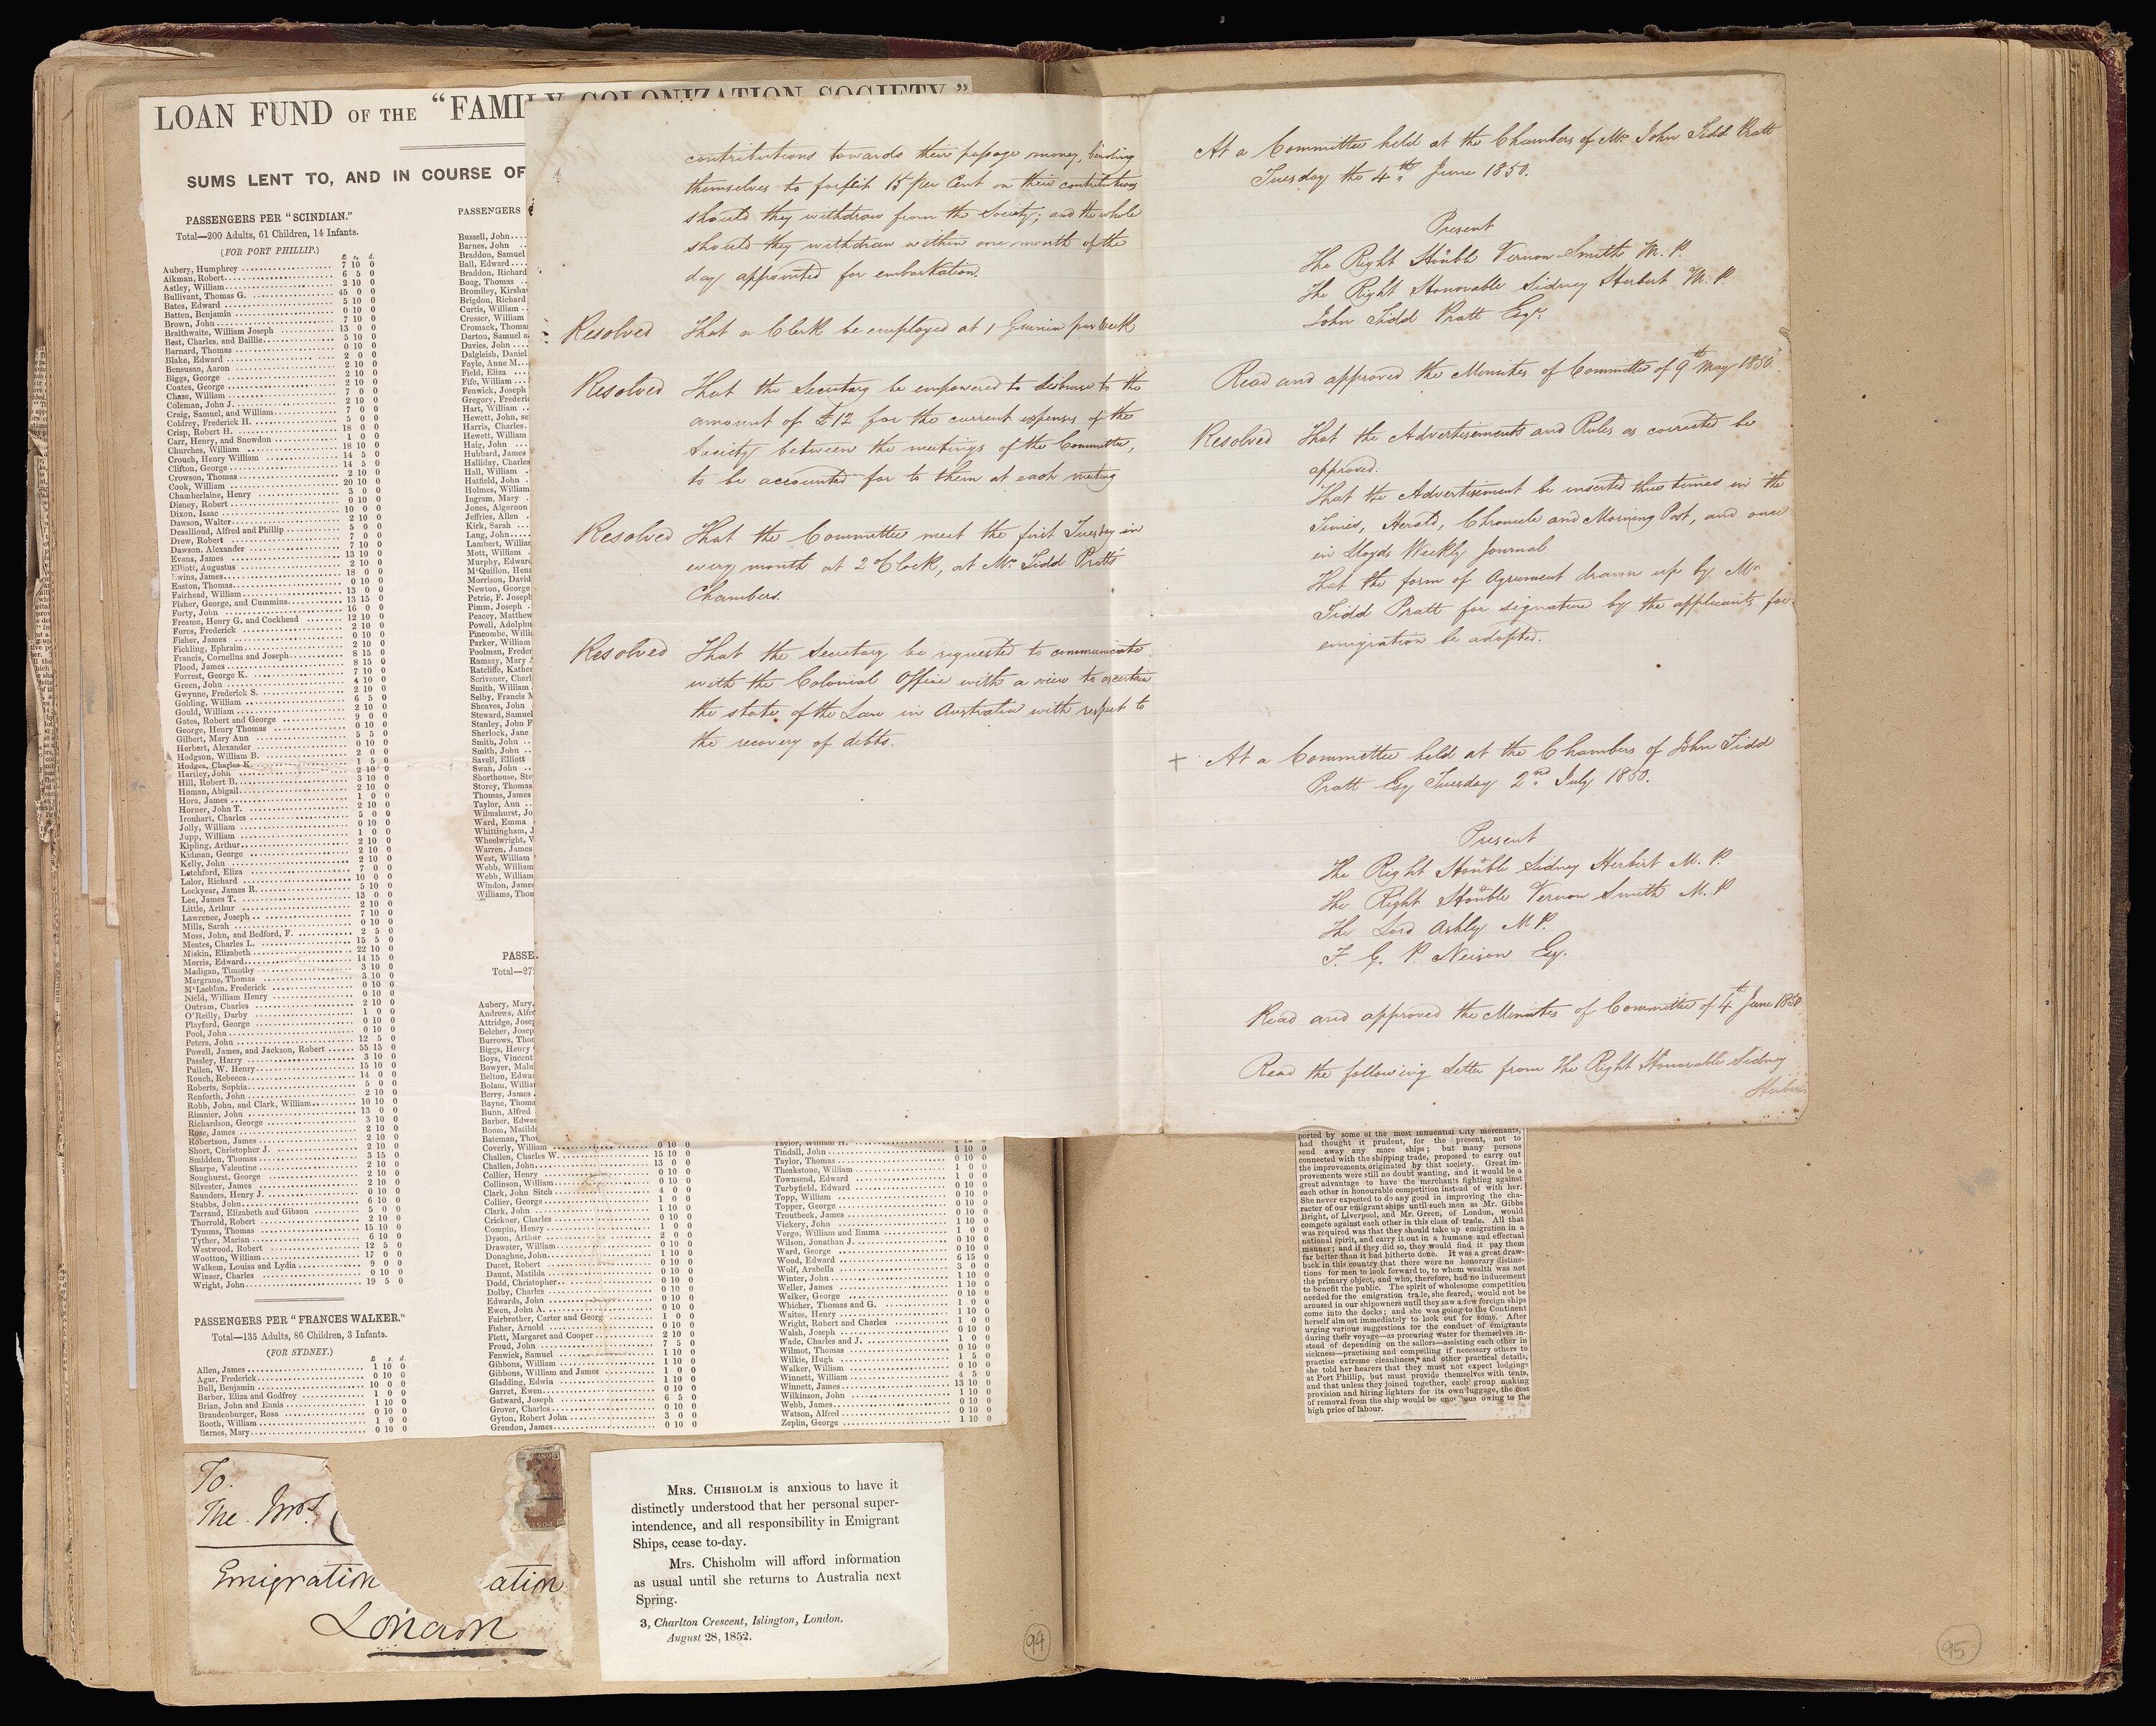 LOAN FUND OF THE "FAMILY COLONIZATION SOCIETY."
SUMS LENT TO, AND IN COURSE OF
PASSENGERS PER "SCINDIAN."
Total—200 Adults, 61 Children, 14 Infants.
(FOR PORT PHILLIP.)
£ s. d.
Aubery, Humphrey 7 10 0
Aikman, Robert 6 5 0
Astley, William 2 10 0
Bullivant, Thomas G. 45 0 0
Bates, Edward 5 10 0
Batten, Benjamin 0 10 0
Brown, John 7 10 0
Braithwaite, William Joseph 13 0 0
Best, Charles, and Baillie 5 10 0
Barnard, Thomas 0 10 0
Blake, Edward 2 0 0
Bensusan, Aaron 2 10 0
Biggs, George 2 10 0
Coates, George 2 10 0
Chase, William 7 0 0
Coleman, John J. 2 10 0
Craig, Samuel, and William 7 0 0
Coldrey, Frederick H. 5 0 0
Crisp, Robert H. 18 0 0
Carr, Henry, and Snowdon 1 0 0
Churches, William 18 10 0
Crouch, Henry William 14 5 0
Clifton, George 14 5 0
Crowson, Thomas 2 10 0
Cook, William 20 10 0
Chamberlaine, Henry 3 0 0
Disney, Robert 0 10 0
Dixon, Isaac 10 0 0
Dawson, Walter 2 10 0
Desailloud, Alfred and Phillip 5 0 0
Drew, Robert 7 0 0
Dawson, Alexander 7 10 0
Evans, James 13 10 0
Elliott, Augustus 2 10 0
Ewins, James 18 0 0
Easton, Thomas 0 10 0
Fairhead, William 13 0 0
Fisher, George, and Cummins 13 15 0
Forty, John 16 0 0
Freame, Henry G. and Cockhead 12 10 0
Fores, Frederick 2 10 0
Fisher, James 0 10 0
Fickling, Ephraim 2 10 0
Francis, Cornelius and Joseph 8 15 0
Flood, James 8 15 0
Forrest, George K. 7 10 0
Green, John 4 10 0
Gwynne, Frederick S. 2 10 0
Golding, William 6 5 0
Gould, William 2 10 0
Gates, Robert and George 9 0 0
George, Henry Thomas 0 10 0
Gilbert, Mary Ann 5 5 0
Herbert, Alexander 0 10 0
Hodgson, William B. 2 0 0
Hodges, Charles K. 1 5 0
Hartley, John 2 10 0
Hill, Robert B. 3 10 0
Homan, Abigail 2 10 0
Hora, James 1 0 0
Horner, John T. 2 10 0
Ironhart, Charles 5 0 0
Jolly, William 0 10 0
Jupp, William 1 0 0
Kipling, Arthur 2 10 0
Kidman, George 2 10 0
Kelly, John 2 10 0
Letchford, Eliza 7 0 0
Lalor, Richard 10 0 0
Lockyear, James R. 5 10 0
Lee, James T. 13 0 0
Little, Arthur 2 10 0
Lawrence, Joseph 7 10 0
Mills, Sarah 0 10 0
Moss, John, and Bedford, F. 2 5 0
Meates, Charles L. 15 5 0
Miskin, Elizabeth 22 10 0
Morris, Edward 14 15 0
Madigan, Timothy 3 10 0
Margrane, Thomas 3 10 0
M'Lachlan, Frederick 0 10 0
Nield, William Henry 0 10 0
Outram, Charles 2 10 0
O'Reilly, Darby 1 0 0
Playford, George 0 10 0
Pool, John 0 10 0
Peters, John 12 5 0
Powell, James, and Jackson, Robert 55 15 0
Passley, Harry 3 10 0
Pullen, W. Henry 15 10 0
Rouch, Rebecca 14 0 0
Roberts, Sophia 5 0 0
Renforth, John 2 10 0
Robb, John, and Clark, William 10 10 0
Rimnier, John 13 0 0
Richardson, George 3 10 0
Rose, James 2 10 0
Robertson, James 2 10 0
Short, Christopher J. 2 10 0
Smidden, Thomas 3 15 0
Sharpe, Valentine 2 10 0
Songhurst, George 2 10 0
Silvester, James 2 10 0
Saunders, Henry J. 0 10 0
Stubbs, John 6 10 0
Tarrand, Elizabeth and Gibson 5 0 0
Thorrold, Robert 2 10 0
Tymms, Thomas 15 10 0
Tyther, Marian 6 10 0
Westwood, Robert 12 5 0
Wootton, William 17 0 0
Walkem, Louisa and Lydia 9 0 0
Winser, Charles 0 10 0
Wright, John 19 5 0
PASSENGERS PER "FRANCES WALKER."
Total—135 Adults, 86 Children, 3 Infants.
(FOR SYDNEY.)
£ s. d.
Allen, James 1 10 0
Agar, Frederick 0 10 0
Bull, Benjamin 10 0 0
Barber, Eliza and Godfrey 1 0 0
Brian, John and Ennis 1 10 0
Brandenburger, Rosa 0 10 0
Booth, William 1 0 0
Barnes, Mary 0 10 0
PASSENGERS
Bussell, John
Barnes, John
Braddon, Samuel
Ball, Edward
Braddon, Richard
Boag, Thomas
Bromiley, Kirsha
Brigdon, Richard
Curtis, William
Cresser, William
Cromack, Thomas
Darton, Samuel a
Davies, John
Dalgleish, Daniel
Fayle, Anne M.
Field, Eliza
Fife, William
Fenwick, Joseph
Gregory, Frederic
Hart, William
Hewett, John, se
Harris, Charles
Hewett, William
Haig, John
Hubbard, James
Halliday, Charles
Hall, William
Hatfield, John
Holmes, William
Ingram, Mary
Jones, Algernon
Jeffries, Allen
Kirk, Sarah
Lang, John
Lambert, William
Mott, William
Murphy, Edward
M'Quillon, Henr
Morrison, David
Newton, George
Petrie, F. Joseph
Pimm, Joseph
Peacey, Matthew
Powell, Adolphu
Pincombe, Willi
Parker, William
Poolman, Freder
Ramsay, Mary A
Ratcliffe, Kather
Scrivener, Charl
Smith, William
Selby, Francis M
Sheaves, John
Steward, Samuel
Stanley, John F
Sherlock, Jane
Smith, John
Smith, John
Savell, Elliott
Swan, John
Shorthouse, Ste
Storey, Thomas
Thomas, James
Taylor, Ann
Wilmshurst, Jo
Ward, Emma
Whittingham, J
Wheelwright, W
Warren, James
West, William
Webb, William
Webb, William
Windon, James
Williams, Thon
PASSE
Total—27
Aubery, Mary,
Andrews, Alfre
Attridge, Josep
Belcher, Josep
Burrows, Thor
Biggs, Henry
Boys, Vincent
Bowyer, Malu
Belton, Edwa
Bolam, Willia
Berry, James
Bayne, Thoma
Bunn, Alfred
Barber, Edwa
Boom, Matilda
Bateman, Tho
Coverly, William 0 10 0
Challen, Charles W. 15 10 0
Challen, John 13 0 0
Collier, Henry 0 10 0
Collinson, William 0 10 0
Clark, John Sitch 4 0 0
Collier, George 1 0 0
Clark, John 1 10 0
Crickner, Charles 0 10 0
Compin, Henry 1 0 0
Dyson, Arthur 2 0 0
Drawater, William 0 10 0
Donaghue, John 1 10 0
Ducet, Robert 0 10 0
Daunt, Matilda 0 10 0
Dodd, Christopher 0 10 0
Dolby, Charles 0 10 0
Edwards, John 0 10 0
Ewen, John A. 0 10 0
Fairbrother, Carter and Georg 1 0 0
Fisher, Arnold 0 10 0
Flett, Margaret and Cooper 2 10 0
Froud, John 7 5 0
Fenwick, Samuel 1 10 0
Gibbons, William 1 10 0
Gibbons, William and James 1 0 0
Gladding, Edwin 1 10 0
Garret, Ewen 0 10 0
Gatward, Joseph 6 5 0
Grover, Charles 0 10 0
Gyton, Robert John 3 0 0
Grendon, James 0 10 0
Taylor, William H. 0 10 0
Tindall, John 1 10 0
Taylor, Thomas 0 10 0
Theakstone, William 1 0 0
Townsend, Edward 1 0 0
Turbyfield, Edward 0 10 0
Topp, William 0 10 0
Topper, George 0 10 0
Troutbeck, James 0 10 0
Vickery, John 1 10 0
Vergo, William and Emma 1 0 0
Wilson, Jonathan J. 0 10 0
Ward, George 0 10 0
Wood, Edward 6 15 0
Wolf, Arabella 3 0 0
Winter, John 1 10 0
Weller, James 1 10 0
Walker, George 0 10 0
Whicher, Thomas and G. 1 0 0
Waites, Henry 1 10 0
Wright, Robert and Charles 1 0 0
Walsh, Joseph 0 10 0
Wade, Charles and J. 1 0 0
Wilmot, Thomas 0 10 0
Wilkie, Hugh 1 5 0
Walker, William 0 10 0
Winnett, William 4 5 0
Winnett, James 13 10 0
Wilkinson, John 1 10 0
Webb, James 0 10 0
Watson, Alfred 0 10 0
Zeplin, George 1 10 0
contributions towards their passage money, binding
themselves to forfeit 15 per Cent on their contributions
should they withdraw from the Society; and the whole
should they withdraw within one month of the
day appointed for embarkation.
Resolved That a Clerk be employed at 1 Guinea per Week
Resolved That the Secretary be empowered to disburse to the
amount of £12 for the current expenses of the
Society between the meetings of the Committee,
to be accounted for to them at each meeting
Resolved That the Committee meet the first Tuesday in
every month at 2 o'Clock, at Mr Tidd Pratts'
Chambers.
Resolved That the Secretary be requested to communicate
with the Colonial Office with a view to ascertain
the state of the Law in Australia with respect to
the recovery of debts.
At a Committee held at the Chambers of Mr John Tidd Pratt
Tuesday the 4th June 1850.
Present
The Right Honble Vernon Smith M.P.
The Right Honorable Sidney Herbert M.P.
John Tidd Pratt Esqr.
Read and approved the Minutes of Committee of 9th May 1850.
Resolved That the Advertisements and Rules as corrected be
approved.
That the Advertisement be inserted three times in the
Times, Herald, Chronicle and Morning Post, and once
in Lloyds Weekly Journal
That the form of Agreement drawn up by Mr
Tidd Pratt for signature by the applicants for
emigration be adopted.
+ At a Committee held at the Chambers of John Tidd
Pratt Esq Tuesday 2nd July 1850.
Present
The Right Honble Sidney Herbert M.P.
The Right Honble Vernon Smith M.P
The Lord Ashley MP.
F. G. P. Neison Esq.
Read and approved the Minutes of Committee of 4th June 1850
Read the following Letter from The Right Honorable Sidney
Herbert
ported by some of the most influential City merchants,
had thought it prudent, for the present, not to
send away any more ships; but many persons
connected with the shipping trade, proposed to carry out
the improvements originated by that society. Great im-
provements were still no doubt wanting, and it would be a
great advantage to have the merchants fighting against
each other in honourable competition instead of with her.
She never expected to do any good in improving the cha-
racter of our emigrant ships until such men as Mr. Gibbs
Bright, of Liverpool, and Mr. Green, of London, would
compete against each other in this class of trade. All that
was required was that they should take up emigration in a
national spirit, and carry it out in a humane and effectual
manner; and if they did so, they would find it pay them
far better than it had hitherto done. It was a great draw-
back in this country that there were no honorary distinc-
tions for men to look forward to, to whom wealth was not
the primary object, and who, therefore, had no inducement
to benefit the public. The spirit of wholesome competition
needed for the emigration trade, she feared, would not be
aroused in our shipowners until they saw a few foreign ships
come into the docks; and she was going to the Continent
herself almost immediately to look out for some. After
urging various suggestions for the conduct of emigrants
during their voyage—as procuring water for themselves in-
stead of depending on the sailors—assisting each other in
sickness—practising and compelling if necessary others to
practise extreme cleanliness, and other practical details,
she told her hearers that they must not expect lodgings
at Port Phillip, but must provide themselves with tents,
and that unless they joined together, each group making
provision and hiring lighters for its own luggage, the cost
of removal from the ship would be eno ous owing to the
high price of labour.
To.
The Mrs (
Emigration ation
London
MRS. CHISHOLM is anxious to have it
distinctly understood that her personal super-
intendence, and all responsibility in Emigrant
Ships, cease to-day.
Mrs. Chisholm will afford information
as usual until she returns to Australia next
Spring.
3, Charlton Crescent, Islington, London.
August 28, 1852.
94
95